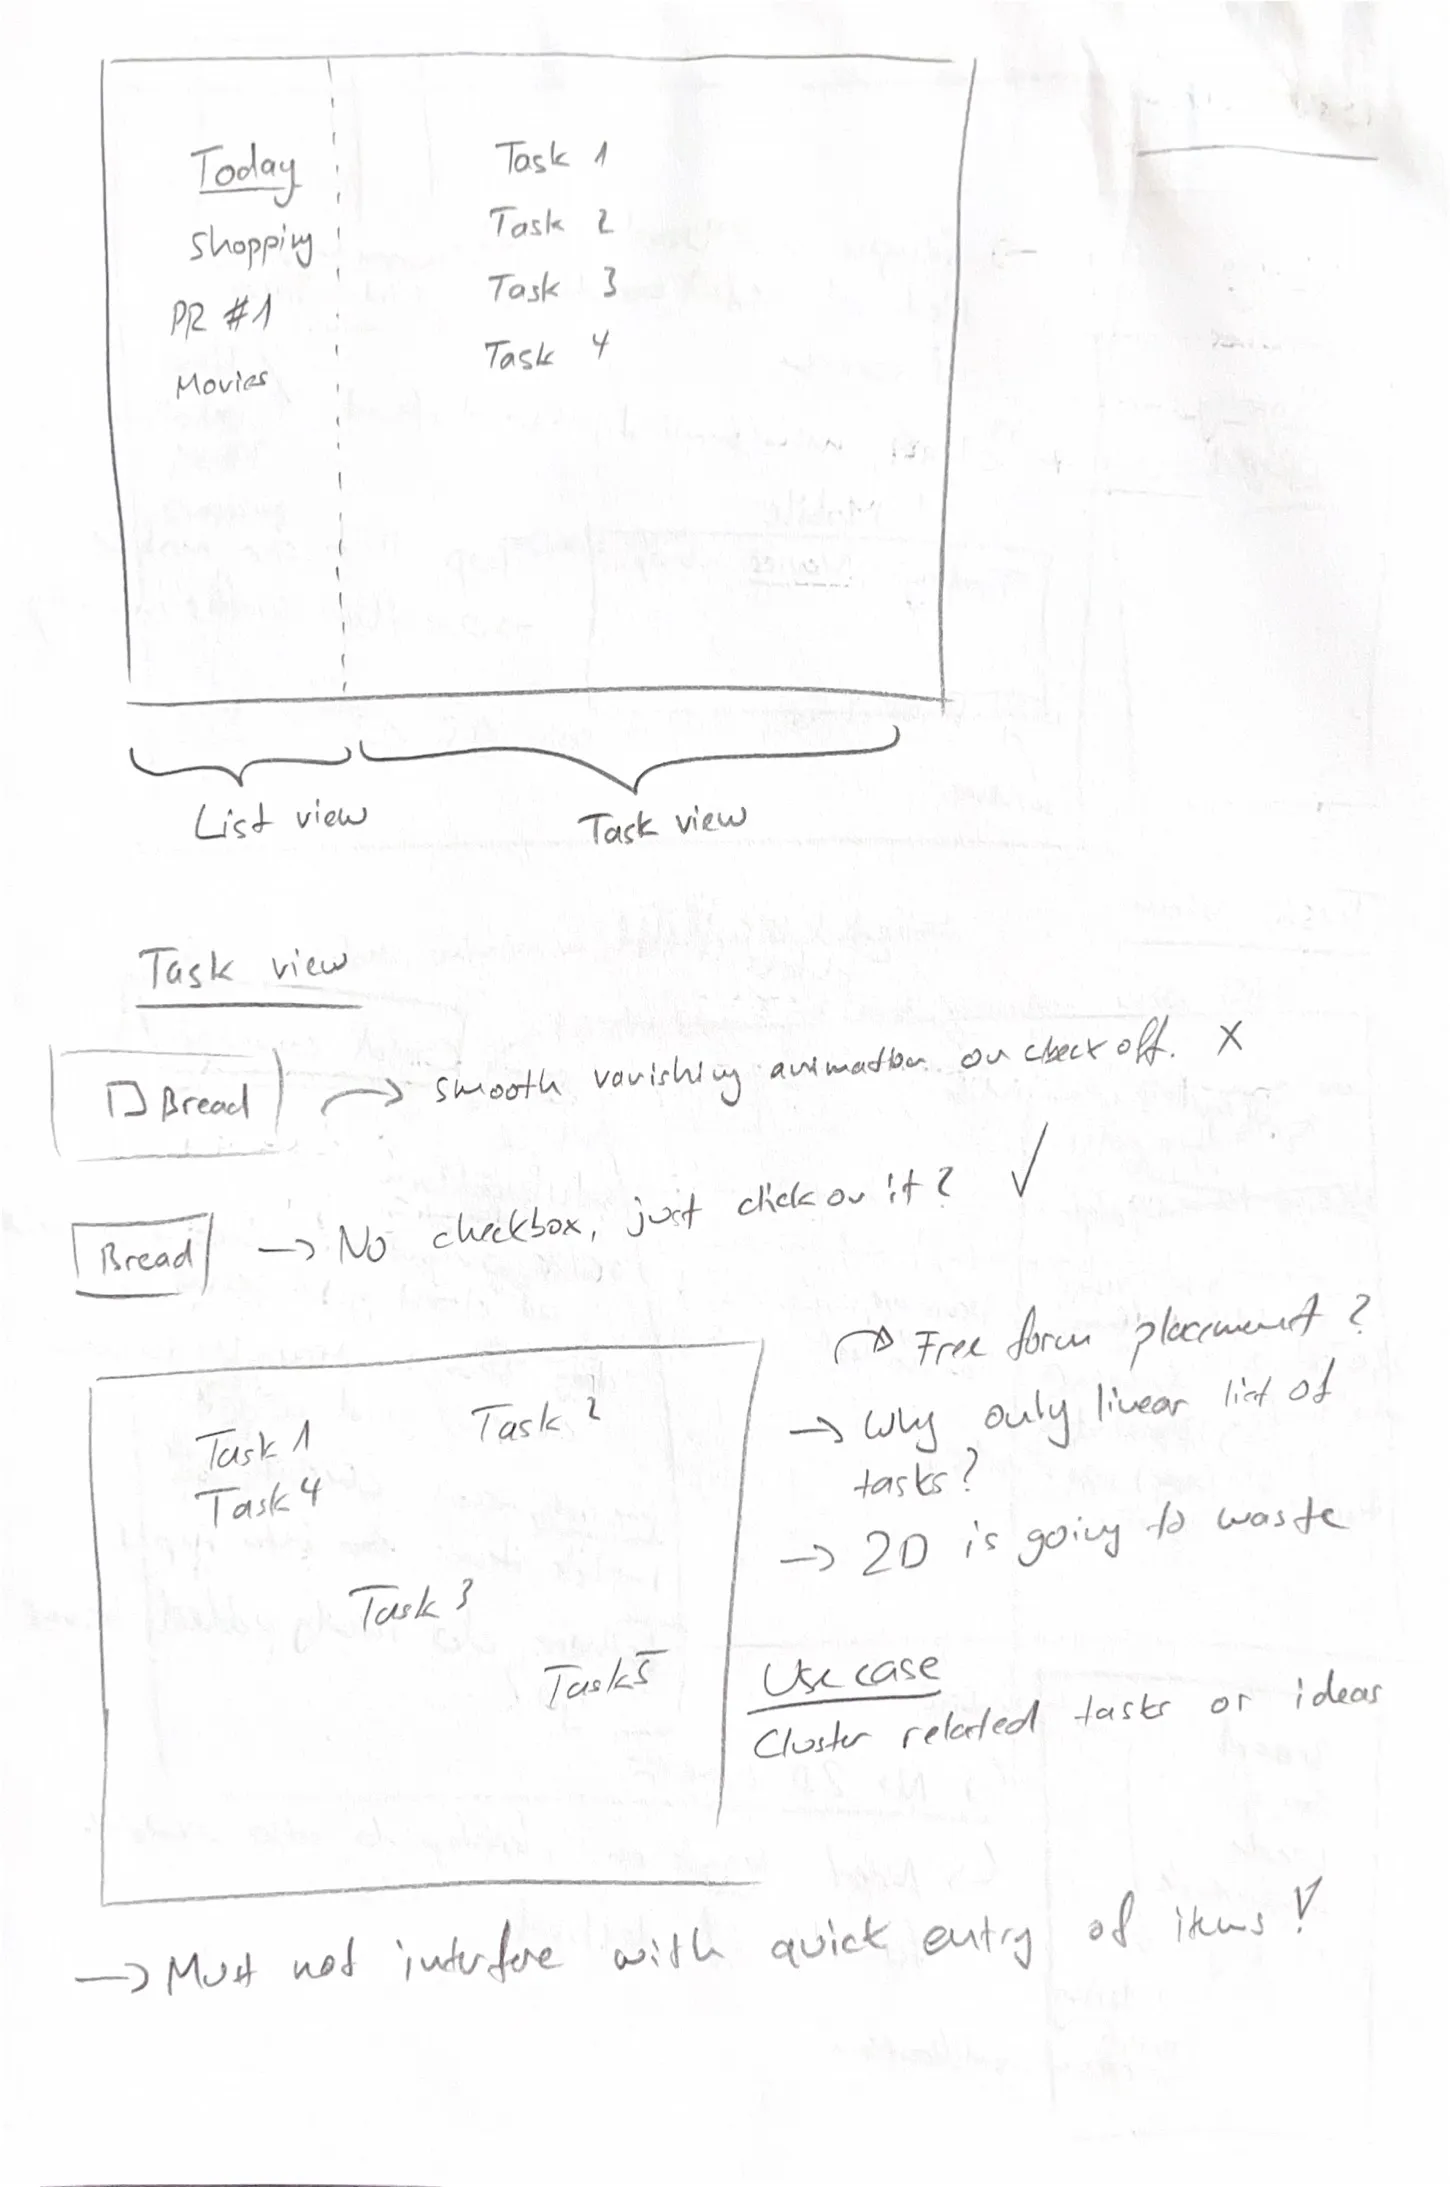 Today
Shopping
PR #1
Movies
Task 1
Task 2
Task 3
Task 4
List view
Task view
Task view
Bread
→ smooth vanishing animation on check off. X
Bread
→ No checkbox, just click on it? ✓
Task 1
Task 2
Task 4
Task 3
Task 5
→ Free form placement?
→ Why only linear list of
tasks?
→ 2D is going to waste
Use case
Cluster related tasks or ideas
→ Must not interfere with quick entry of items!